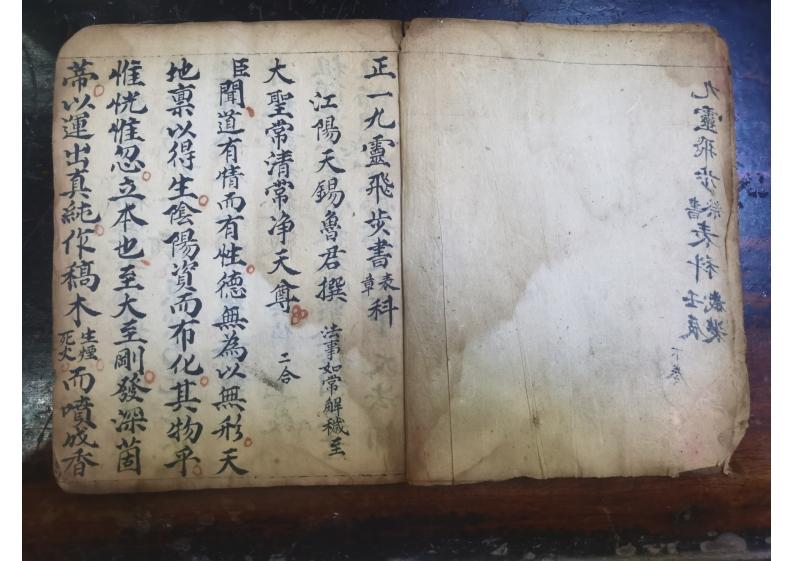 九靈飛步書表科壬辰歲裝
下卷
正一九靈飛步書表章科
江陽天錫魯君撰 法事如常解穢至
大聖常清常净天尊 二合
臣聞道有情而有性德無為以無形天
地禀以得生陰陽資而布化其物乎
惟恍惟忽立本也至大至剛發深箇
蒂以運出真純作稿木生煙死火而噴成香